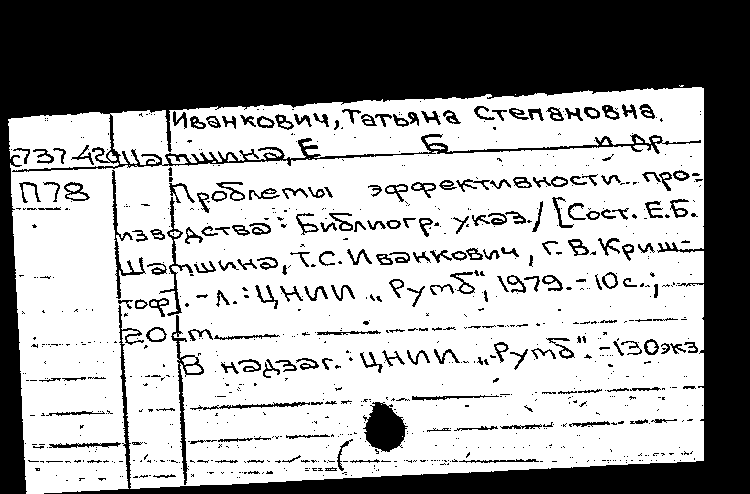 Иванкович, Татьяна Степановна.
с737-420 Шатшина, Е Б и др.
П78 Проблемы эффективности про-
изводства: Библиогр. указ./ [Сост. Е.Б.
Шатшина, Т.С. Иванкович, Г.В. Криш-
тоф]. - Л.: ЦНИИ „Румб", 1979. - 10 с.;
20 см.
В надзаг.: ЦНИИ „Румб". - 130 экз.